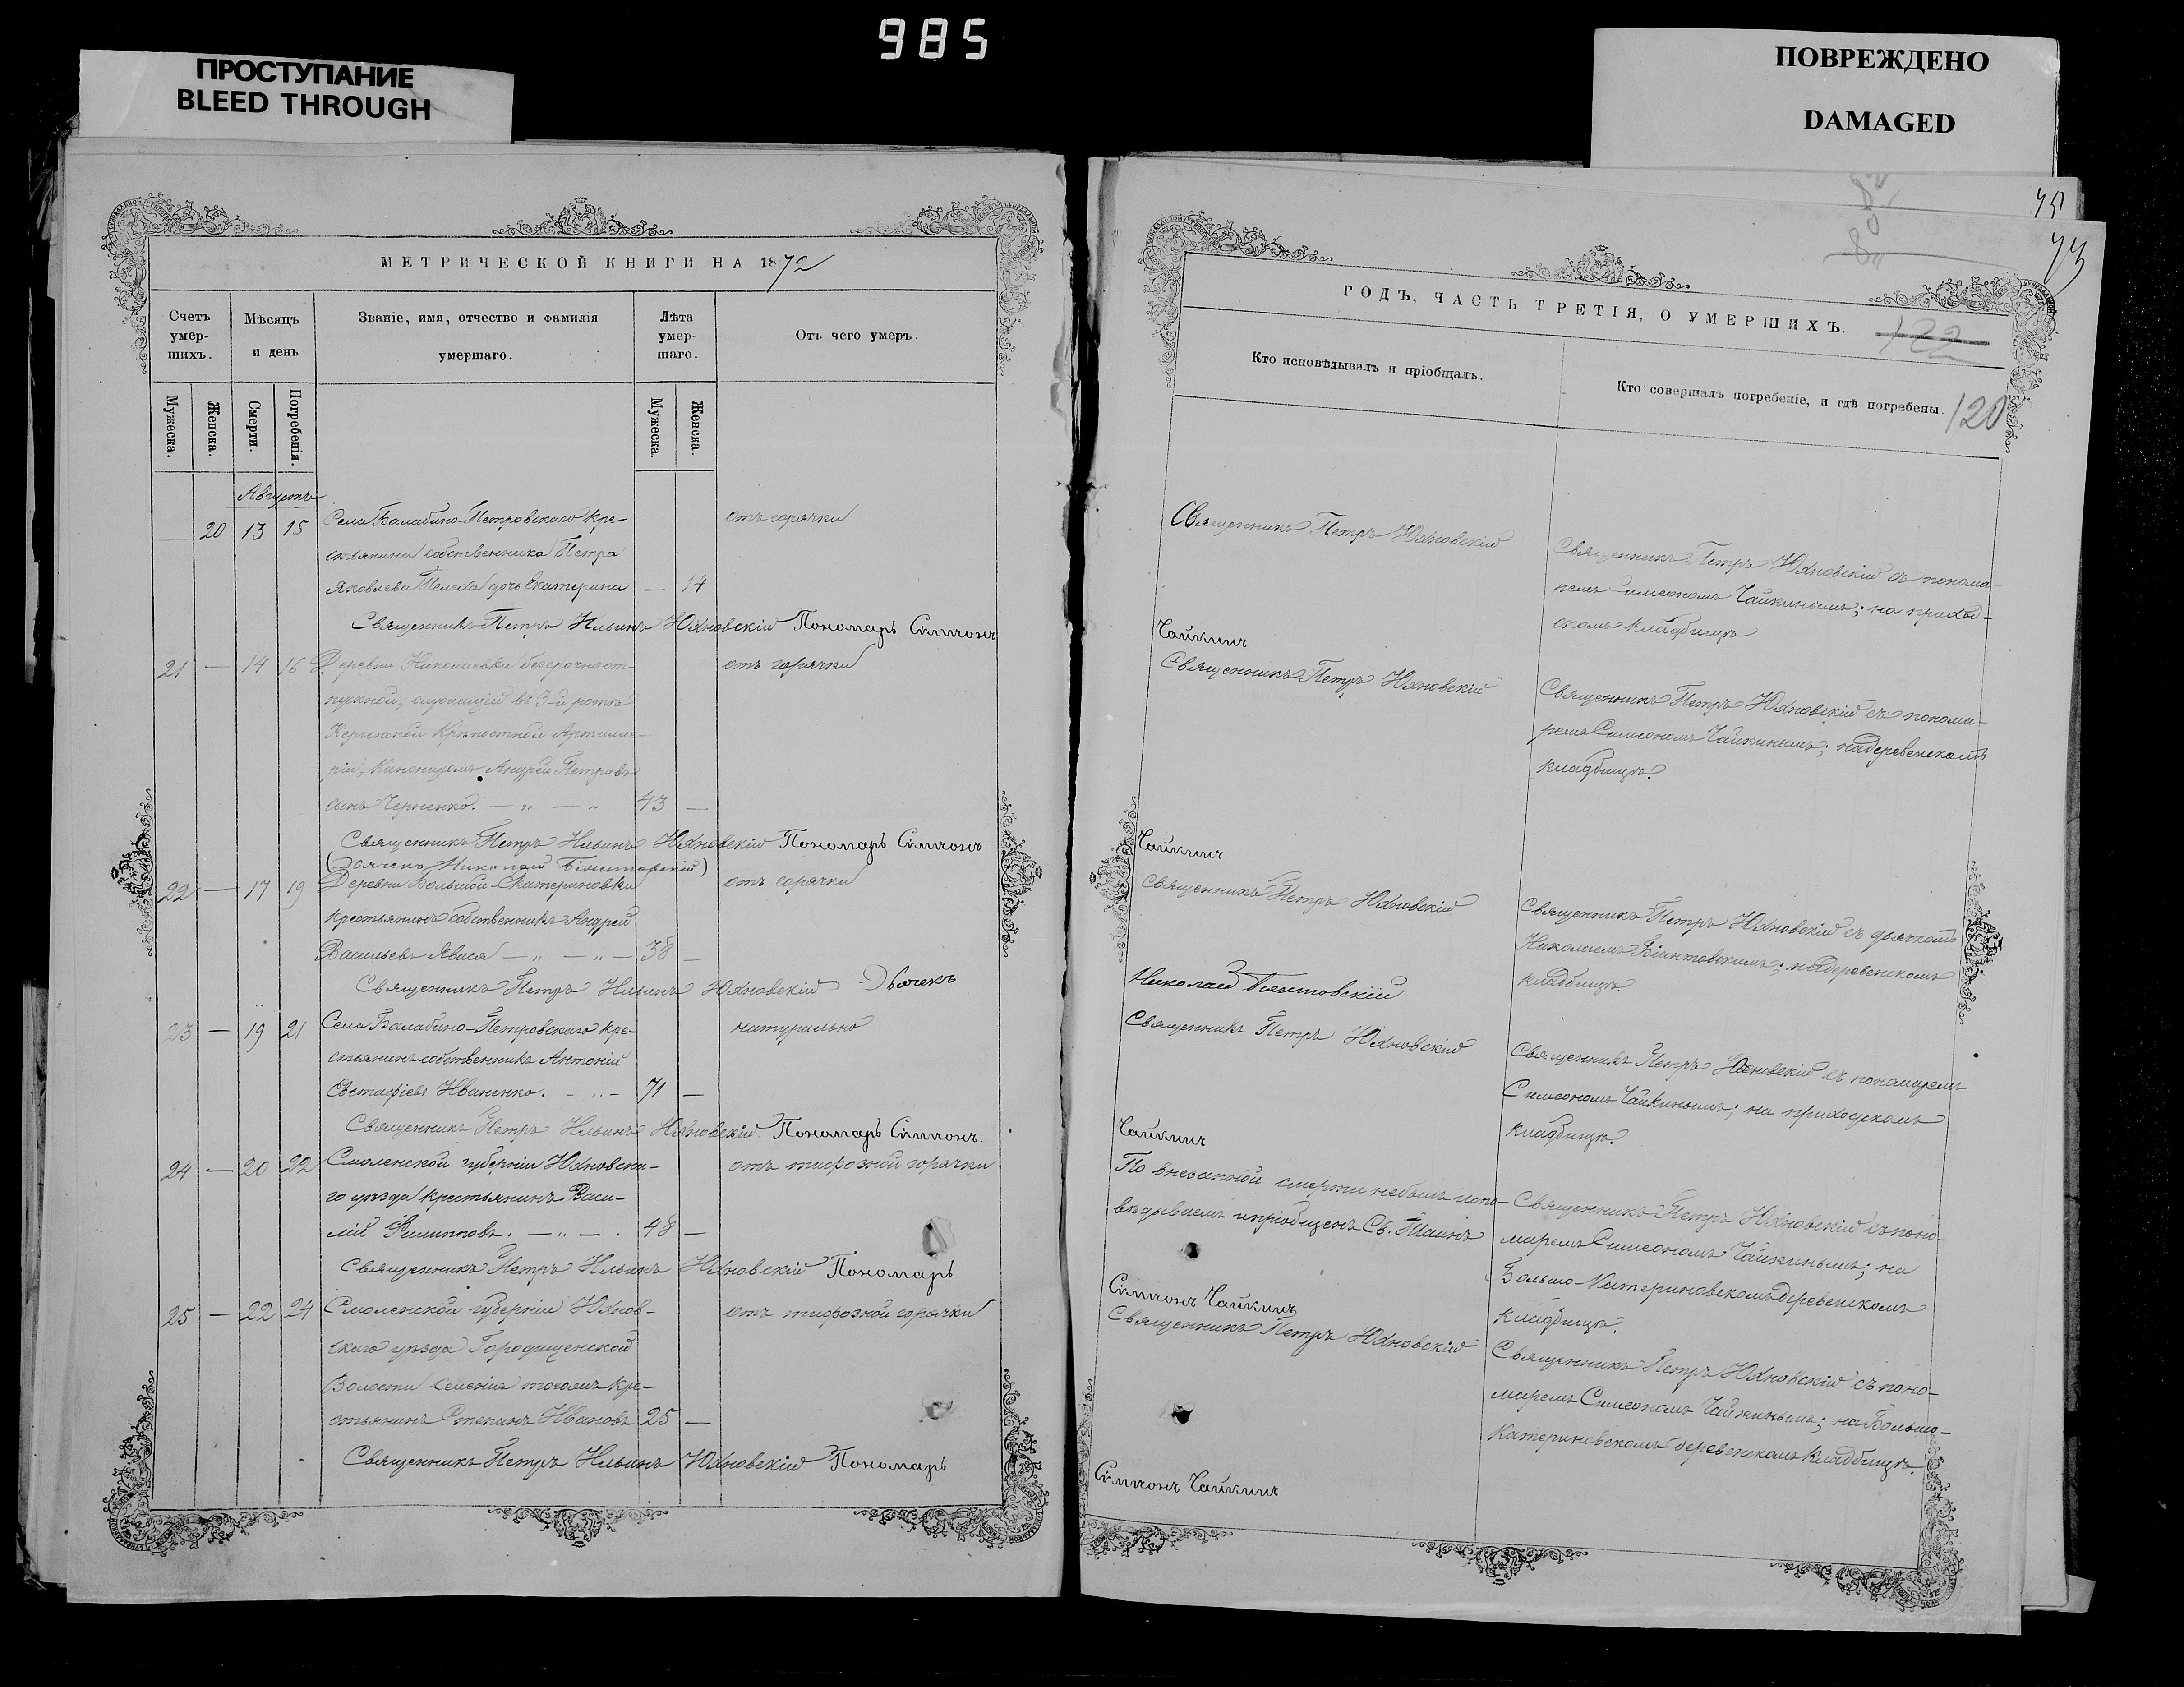 985
ПРОСТУПАНИЕ
BLEED THROUGH
ПОВРЕЖДЕНО
DAMAGED
МЕТРИЧЕСКОЙ КНИГИ НА 1872
Счетъ умер-шихъ.
Мѣсяцъ и день
Званіе, имя, отчество и фамилія умершаго.
Лѣта умер-шаго.
Отъ чего умеръ.
Мужеска.
Женска.
Смерти.
Погребенія.
Мужеска.
Женска.
Августъ
— 20 13 15 Села Балабино-Петровскаго кре- отъ горячки
стьянина собственника Петра
Яковлева Телеха дочь Екатерина — 14
Священникъ Петръ Ильинъ Юхновскій Пономарь Симеонъ
21 — 14 16 Деревни Николаевки безсрочноот- отъ горячки
пускной, служащій въ 3-й ротѣ
Керченской Крѣпостной Артилле-
ріи, Канониромъ Андрей Петровъ
сынъ Черненко. — „ — „ 43 —
Священникъ Петръ Ильинъ Юхновскій Пономарь Симеонъ
(Дьячекъ Николай)
22 — 17 19 Деревни Большой-Екатериновки отъ горячки
крестьянинъ собственникъ Андрей
Васильевъ — „ — „ — 38 —
Священникъ Петръ Ильинъ Юхновскій Дьячекъ
23 — 19 21 Села Балабино-Петровскаго кре- натурально
стьянинъ собственникъ Антоній
Евстафіевъ Иваненко. — „ — 71 —
Священникъ Петръ Ильинъ Юхновскій Пономарь Симеонъ
24 — 20 22 Смоленской губерніи Юхновска- отъ тифозной горячки
го уѣзда крестьянинъ Васи-
лій Филипповъ. — „ — . 48 —
Священникъ Петръ Ильинъ Юхновскій Пономарь
25 — 22 24 Смоленской губерніи Юхнов- отъ тифозной горячки
скаго уѣзда Городищенской
Волости селенія тогожъ кре-
стьянинъ Степанъ Ивановъ 25 —
Священникъ Петръ Ильинъ Юхновскій Пономарь
73
ГОДЪ, ЧАСТЬ ТРЕТІЯ, О УМЕРШИХЪ.
122
Кто исповѣдывалъ и пріобщалъ.
Кто совершалъ погребеніе, и гдѣ погребены.
120
Священникъ Петръ Юхновскій
Священникъ Петръ Юхновскій съ понома-
ремъ Симеономъ Чайкинымъ; на приход-
скомъ кладбищѣ
Чайкинъ
Священникъ Петръ Юхновскій
Священникъ Петръ Юхновскій съ понома-
ремъ Симеономъ Чайкинымъ; на деревенскомъ
кладбищѣ.
Чайкинъ
Священникъ Петръ Юхновскій
Священникъ Петръ Юхновскій съ дьячкомъ
Николаемъ; на деревенскомъ
кладбищѣ.
Николай
Священникъ Петръ Юхновскій
Священникъ Петръ Юхновскій съ пономаремъ
Симеономъ Чайкинымъ; на приходскомъ
кладбищѣ.
Чайкинъ
По внезапной смерти небылъ испо-
вѣдываемъ и пріобщенъ Св. Таинъ
Священникъ Петръ Юхновскій съ поно-
маремъ Симеономъ Чайкинымъ; на
Больше-Катериновскомъ деревенскомъ
кладбищѣ.
Симеонъ Чайкинъ
Священникъ Петръ Юхновскій
Священникъ Петръ Юхновскій съ поно-
маремъ Симеономъ Чайкинымъ; на Больше-
Катериновскомъ деревенскомъ кладбищѣ.
Симеонъ Чайкинъ